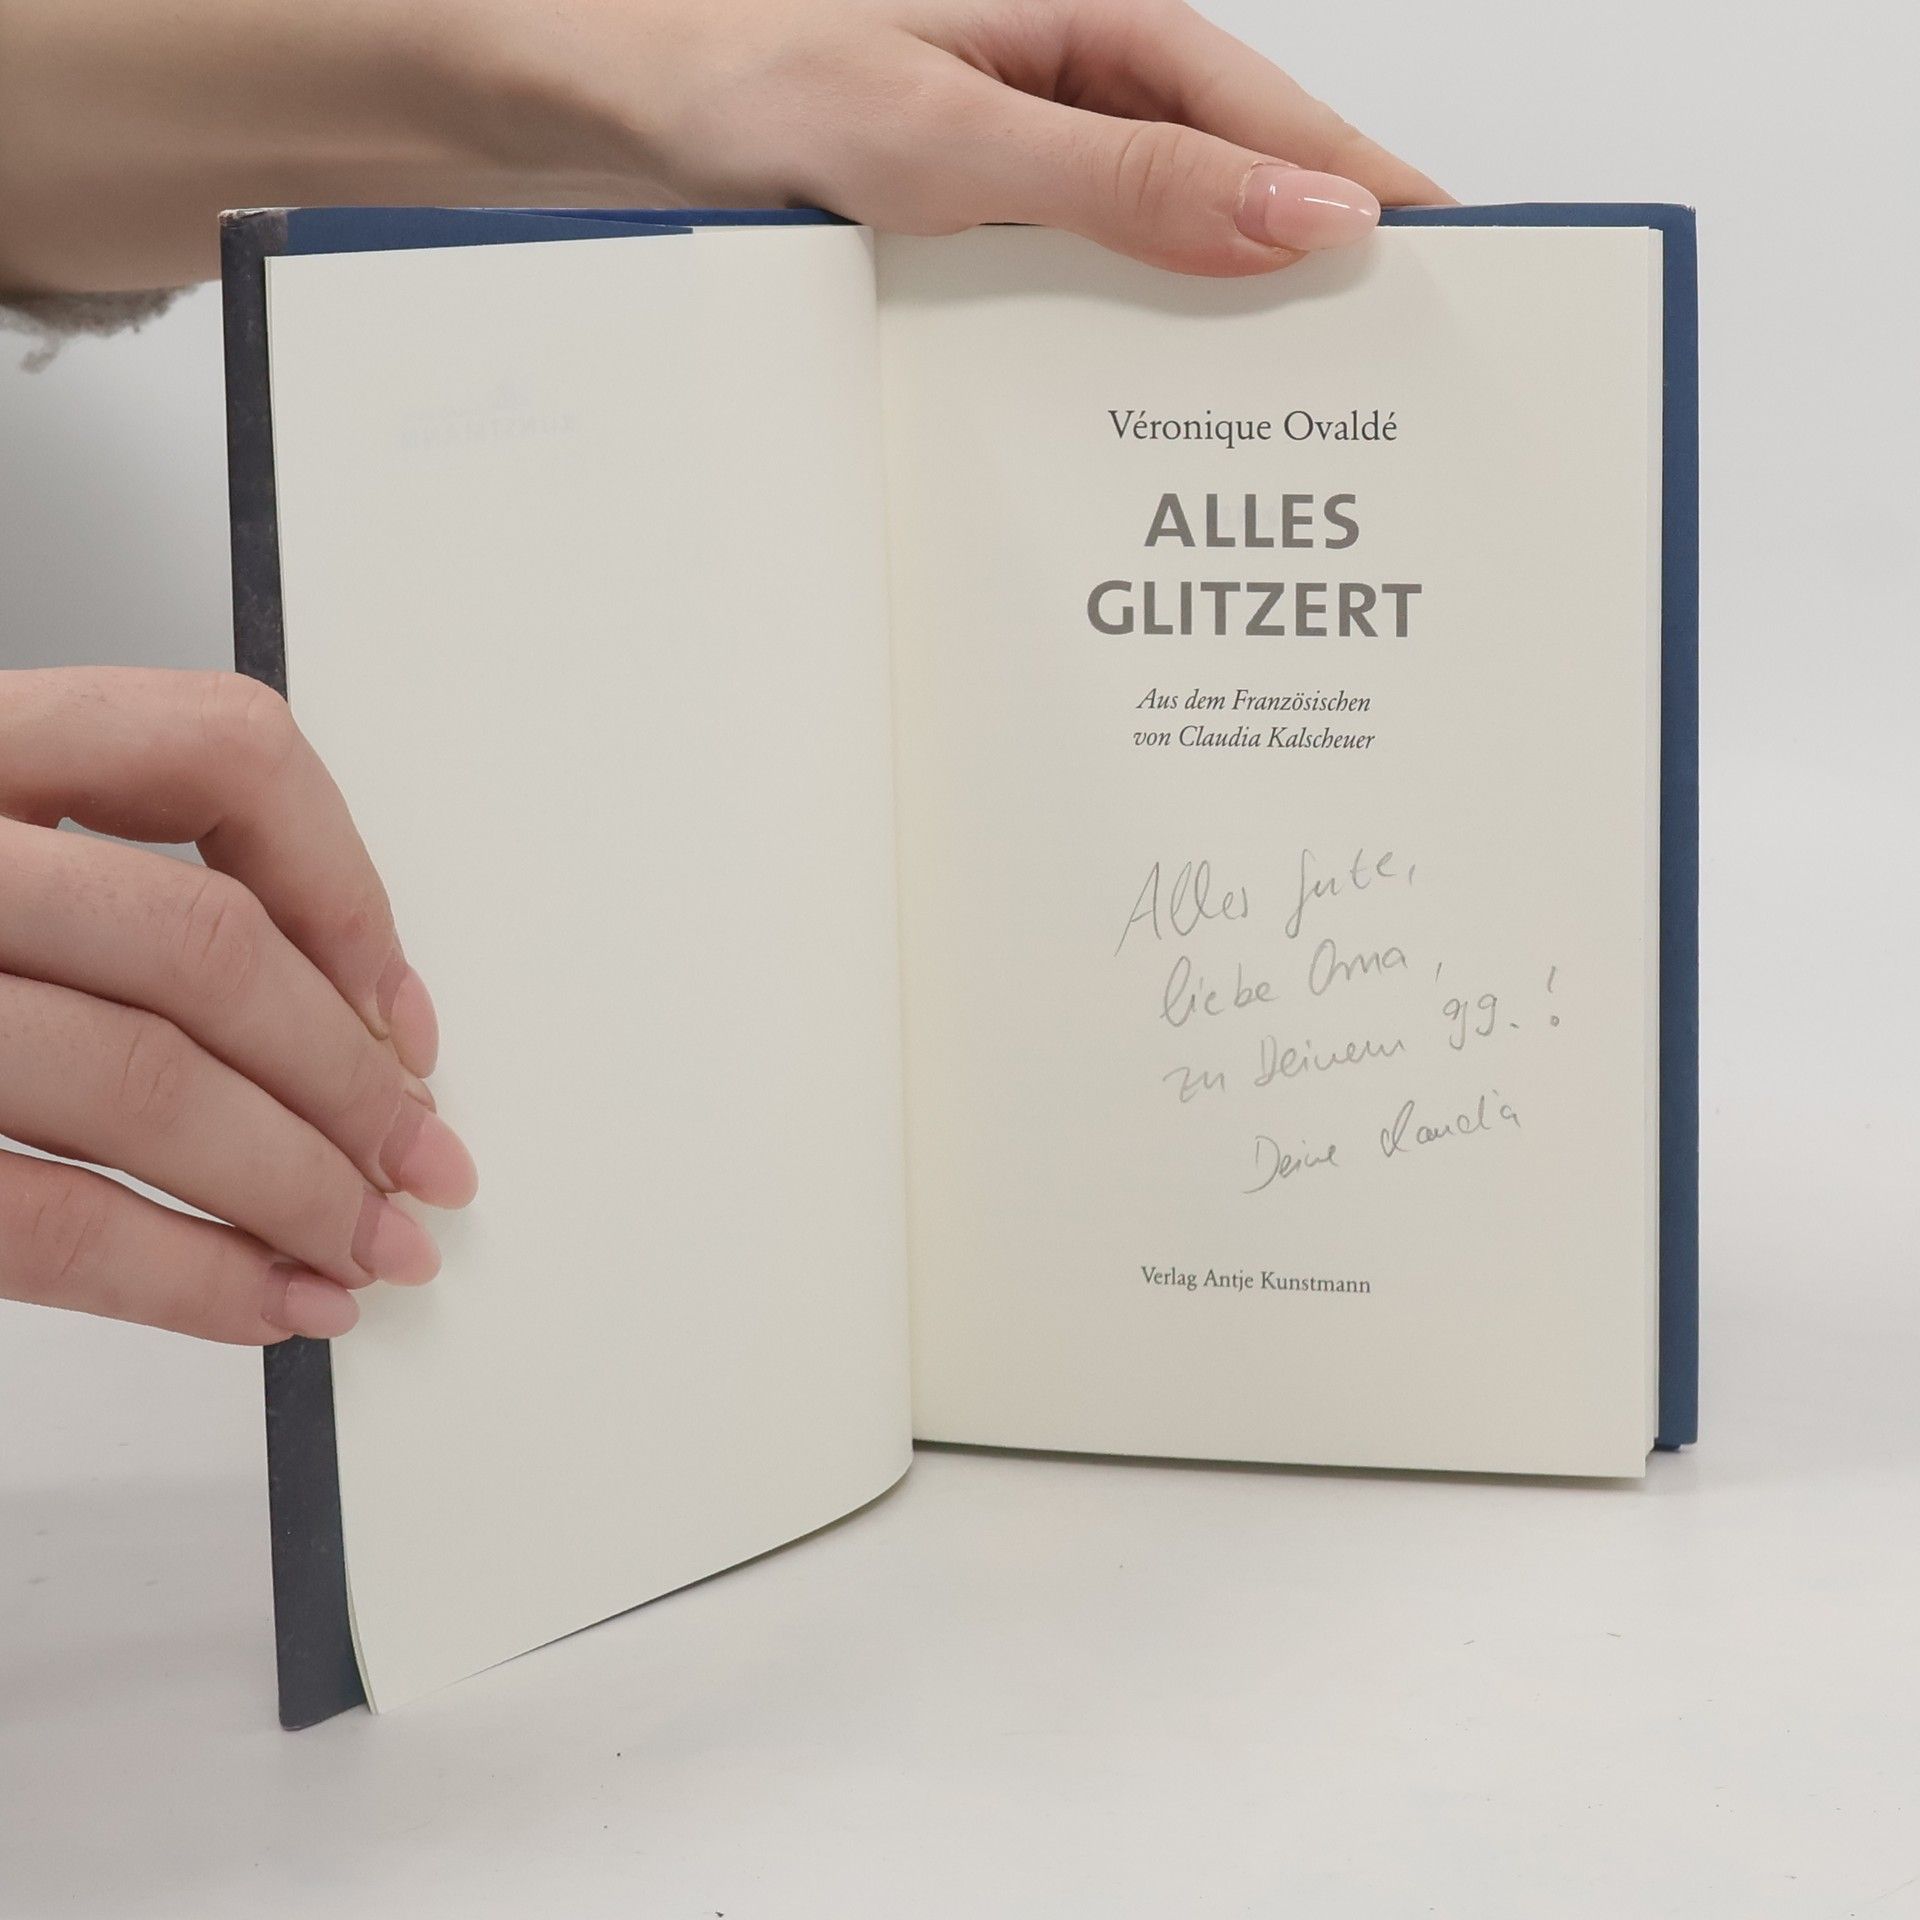 Véronique Ovaldé
ALLES
GLITZERT
Aus dem Französischen
von Claudia Kalscheuer
Alles Gute,
liebe Oma,
zu Deinem 99.!
Deine Claudia
Verlag Antje Kunstmann